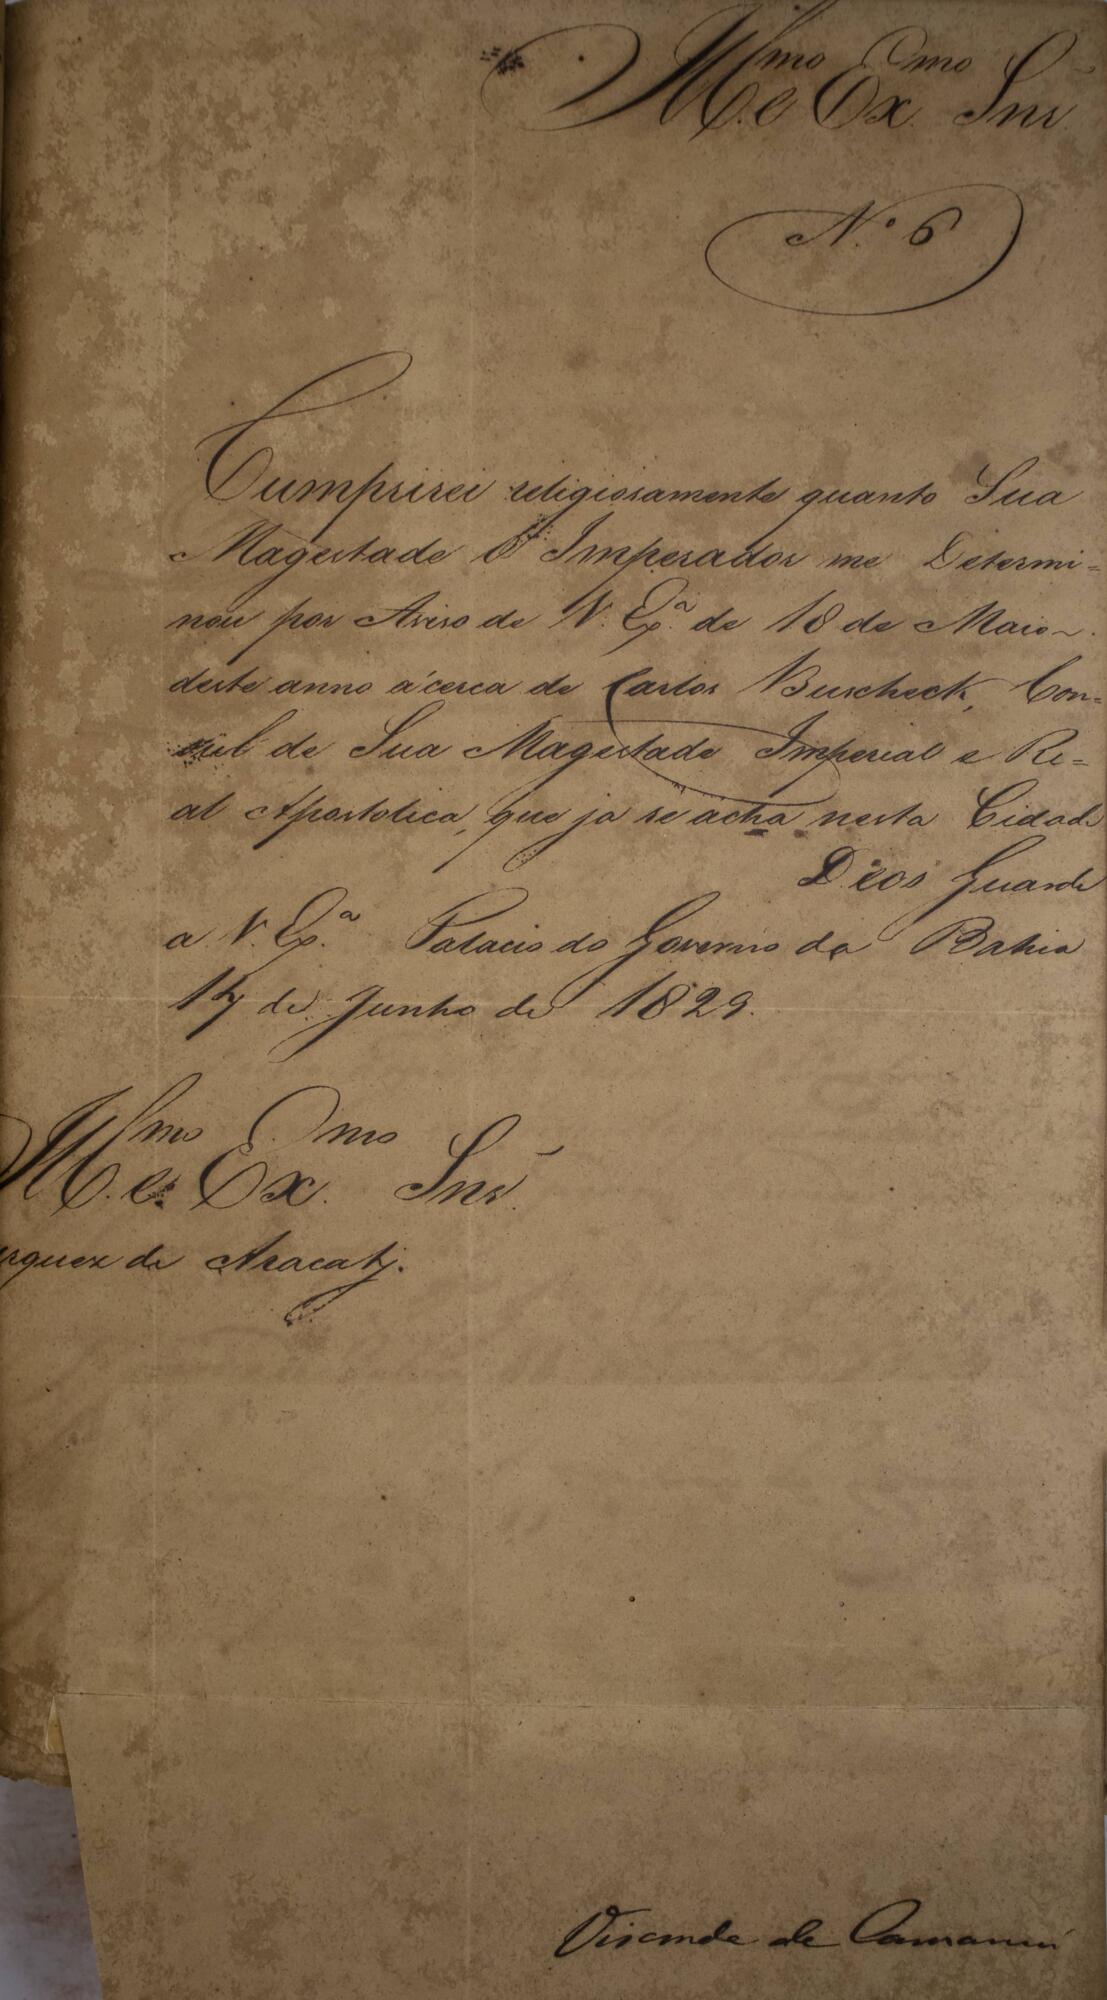 Ill.mo e Ex.mo Snr.
N.º 6
Cumprirei religiosamente quanto Sua
Magestade O Imperador me Determi=
nou por Aviso de V. Ex.ª de 18 de Maio
deste anno ácerca de Carlos Buscheck, Con=
sul de Sua Magestade Imperial e Re=
al Apostolica, que ja se acha nesta Cidade
Deos Guarde
a V. Ex.ª Palacio do Governo da Bahia
17 de Junho de 1829.
Ill.mo e Ex.mo Snr.
rquez de Aracaty.
Visconde de Camamú